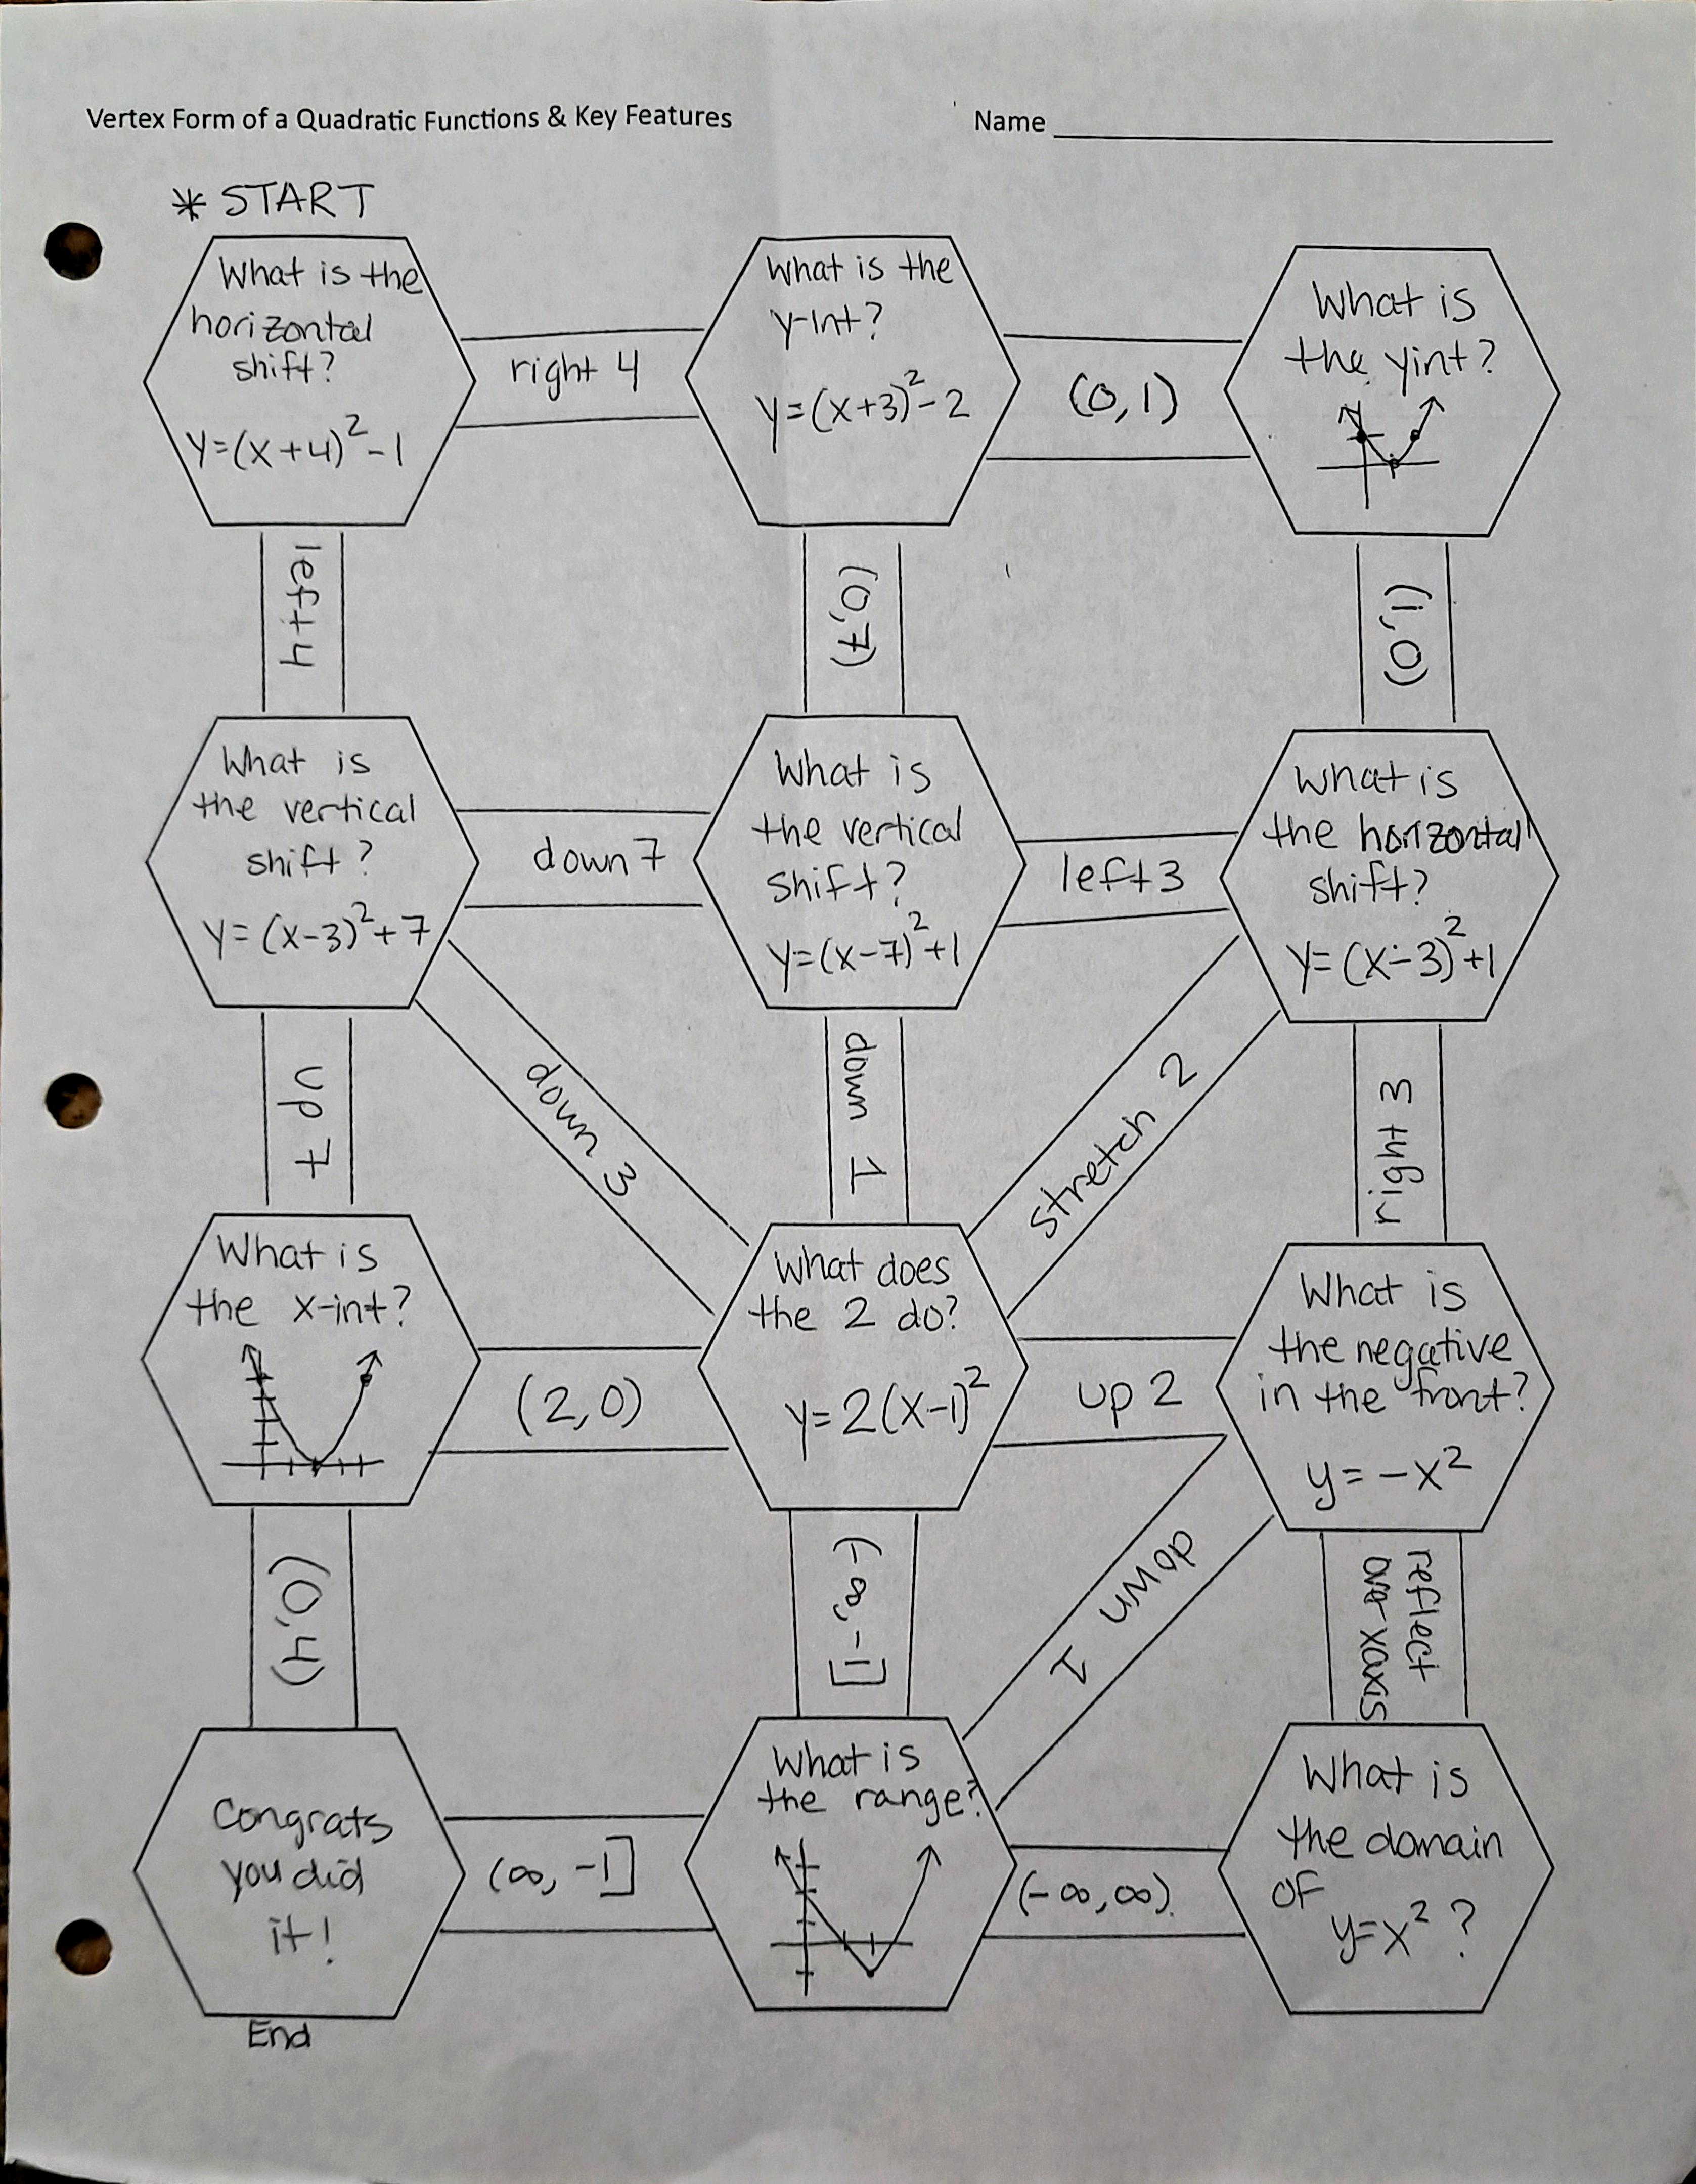 Vertex Form of a Quadratic Functions & Key Features
Name
* START
What is the
horizontal
shift?
y=(x+4)²-1
right 4
What is the
y-int?
y=(x+3)²-2
(0,1)
What is
the yint?
left 4
(0,7)
(1,0)
What is
the vertical
shift?
y=(x-3)²+7
down 7
What is
the vertical
shift?
y=(x-7)²+1
left 3
What is
the horizontal
shift?
y=(x-3)²+1
up 7
down 3
down 1
stretch 2
right 3
What is
the x-int?
(2,0)
What does
the 2 do?
y=2(x-1)²
up 2
What is
the negative
in the front?
y=-x²
(0,4)
(-∞,-1]
down 1
reflect
over xaxis
Congrats
you did
it!
(∞,-1]
What is
the range?
(-∞,∞)
What is
the domain
of
y=x²?
End